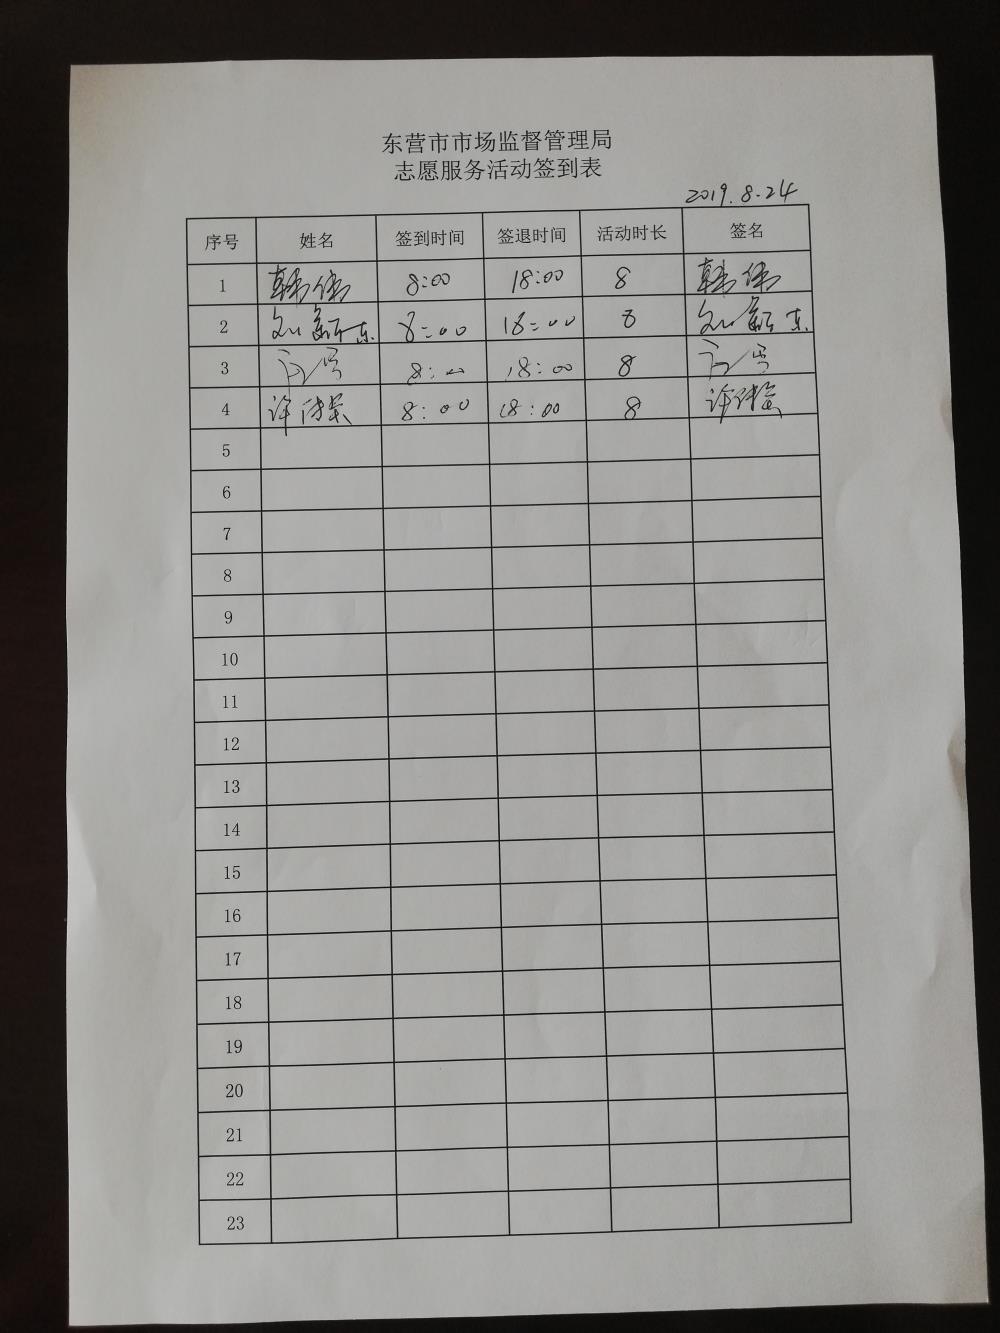 东营市市场监督管理局
志愿服务活动签到表
2019.8.24
序号 姓名 签到时间 签退时间 活动时长 签名
1 韩伟 8:00 18:00 8 韩伟
2 刘新东 8:00 18:00 8 刘新东
3 8:00 18:00 8
4 许 8:00 18:00 8 许
5
6
7
8
9
10
11
12
13
14
15
16
17
18
19
20
21
22
23